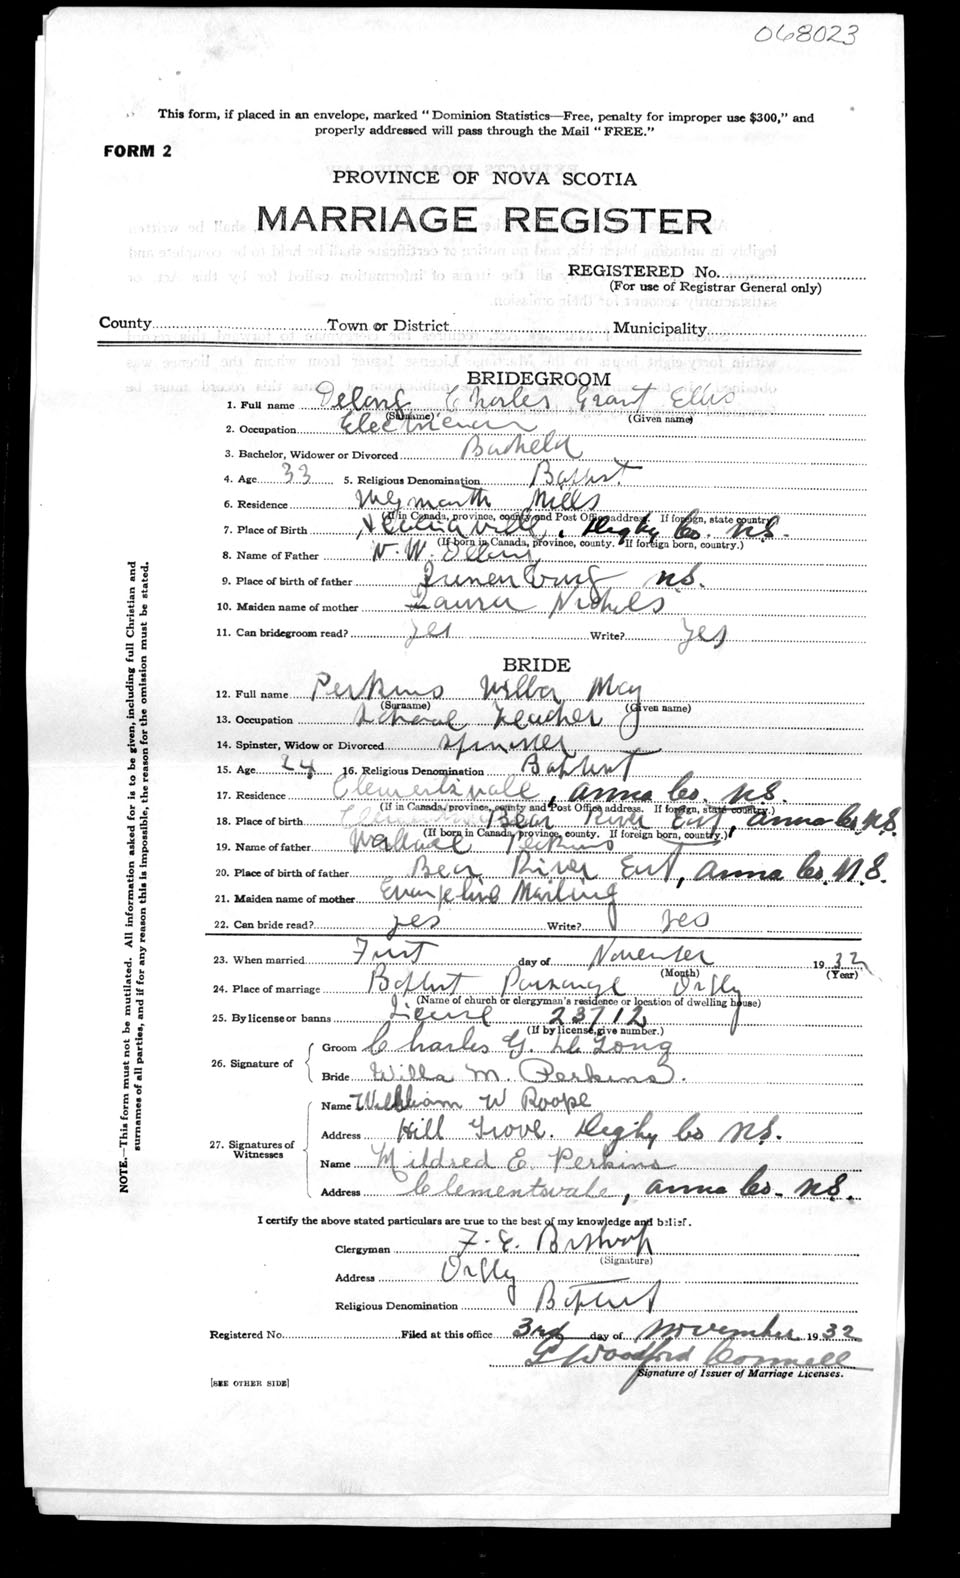 068023
This form, if placed in an envelope, marked "Dominion Statistics—Free, penalty for improper use $300," and
properly addressed will pass through the Mail "FREE."
FORM 2
PROVINCE OF NOVA SCOTIA
MARRIAGE REGISTER
REGISTERED No.
(For use of Registrar General only)
County Town or District Municipality
BRIDEGROOM
1. Full name Delong Charles Grant Ellis
(Surname) (Given name)
2. Occupation Electrician
3. Bachelor, Widower or Divorced Bachelor
4. Age 33 5. Religious Denomination Baptist
6. Residence Weymouth Mills
(If in Canada, province, county and Post Office address. If foreign, state country)
7. Place of Birth Digby Co. N.S.
(If born in Canada, province, county. If foreign born, country.)
8. Name of Father W.
9. Place of birth of father Lunenburg N.S.
10. Maiden name of mother Laura Nichols
11. Can bridegroom read? yes Write? yes
BRIDE
12. Full name Perkins Willa May
(Surname) (Given name)
13. Occupation School Teacher
14. Spinster, Widow or Divorced Spinster
15. Age 24 16. Religious Denomination Baptist
17. Residence Clementsvale, Anna Co. N.S.
(If in Canada, province, county and Post Office address. If foreign, state country.)
18. Place of birth Bear River East, Anna Co. N.S.
(If born in Canada, province, county. If foreign born, country.)
19. Name of father Wallace Perkins
20. Place of birth of father Bear River East, Anna Co. N.S.
21. Maiden name of mother Evangeline
22. Can bride read? yes Write? yes
23. When married First day of November 1932
(Month) (Year)
24. Place of marriage Baptist Parsonage Digby
(Name of church or clergyman's residence or location of dwelling house)
25. By license or banns License 23712
(If by license, give number.)
26. Signature of
Groom Charles G. De Long
Bride Willa M. Perkins.
27. Signatures of Witnesses
Name William W Roope
Address Hill Grove. Digby Co N.S.
Name Mildred E. Perkins
Address Clementsvale, Anna Co. N.S.
I certify the above stated particulars are true to the best of my knowledge and belief.
Clergyman F. E. Bishop
(Signature)
Address Digby
Religious Denomination Baptist
Registered No. Filed at this office 3rd day of November 1932
Woodford Connell
Signature of Issuer of Marriage Licenses.
[SEE OTHER SIDE]
NOTE.—This form must not be mutilated. All information asked for is to be given, including full Christian and
surnames of all parties, and if for any reason this is impossible, the reason for the omission must be stated.